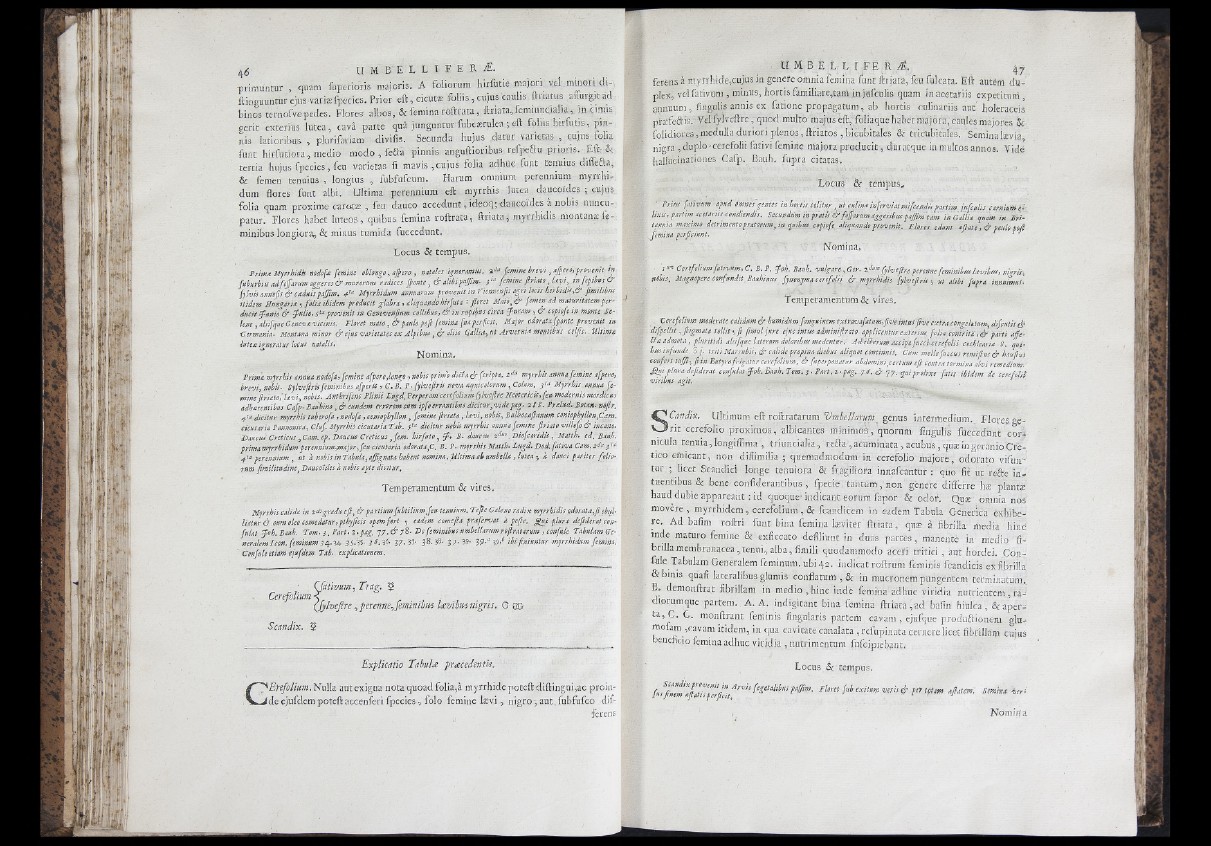 46 UMBELLIFERÆ.
primuntur , quam superioris majoris. A foliorum hirsutie majori vel minori di-
stinguuntur ejus variæ species. Prior est, cicutæ foliis, cujus caulis striatus assurgit ad
binos ternosve pedes. Flores albos, & semina rostrata, striata, semiuncialia, in cimis
gerit exterius lutea, cavâ parte quâ junguntur subcærulea; est foliis hirsutis, pin-
nis latioribus , plurifariam divisis. Secunda hujus datur varietas , cujus folia
sunt hirsutiora, medio modo , secta pinnis angustioribus respectu prioris. Est &
tertia hujus species, seu varietas si mavis, cujus folia adhuc sunt tenuius dissecta,
& semen tenuius , longius , subfuscum. Harum omnium perennium myrrhi-
dum flores sunt albi. Ultima perennium est myrrhis lutea daucoides ; cujus
folia quam proxime careæ , seu dauco accedunt, ideoq; daucoides à nobis nuncu-
patur. Flores habet luteos, quibus semina rostrata, striata, myrrhidis montanæ se-
minibus longiora, & minus tumida succedunt.
Locus & tempus.
Primæ Myrrhidis nodosæ semine oblongo, aspero, natales ignoramus. 2da semine brevi, aspero, provenit in
suburbiis ad fossarum aggeres & macerum radices sponte, & alibi passim. 3tia semine striato, lævi, in sepibus &
sylvis annosis & caduis passim. 4ta Myrrhidum annuarum provenit in
itidem Hungariæ, folia ibidem producit glabra, aliquando hirsuta : floret Maio, & semen ad maturitatem per-
ducit Junio & Julio. 5ta provenit in Genevensium collibus, & in rupibus circa Juram, & copiose in monte Sa-
leve, aliisque Genevæ vicinis. Floret maio, & paulo post semina sua perficit. Major odorata sponte provenit in
Germania. Montana minor & ejus varietates ex Alpibus, & aliis Galliæ, ut Arverniæ montibus celsis. Ultimæ
luteæ ignoratur locus natalis.
Nomina.
Prima myrrhis annua nodosa, semine aspero, longo, nobis primo dicta & scripta. 2da myrrhis annua semine aspero,
brevi, nobis. Sylvestris seminibus asperis, C. B. P. sylvestris nova æquicolorum, Colum. 3tia Myrrhis annua se-
mine striato, lævi, nobis. Anthriscus Plinii Lugd. Perperam cerefolium sylvestre
adhærentibus Cæsp. Bauhino, & eundem errorem cum ipso errantibus dicitur, vide pag. 218. Prælud. Botan. nostr.
4ta dicitur myrrhis tuberosa, nodosa, conophyllon, semine striato, lævi, nobis, Bulbocastanum coniophyllon, Cam.
cicutaria Pannonica. Clus. Myrrhis cicutaria Tab. 5ta dicitur nobis myrrhis annua semine striato villoso & incano.
Daucus Creticus, Cam. ep. Daucus Creticus, sem. hirsuto, J. B. daucus 2dus Dioscoridis, Matth. ed. Bauh.
prima myrrhidum perennium, major, seu cicutaria odorata, C. B. P. myrrhis Matth. Lugd. Dod. fatua Cam. 2da 3tia
4ta perennium , ut à nobis in Tabula, assignata habent nomina. Ultima ab umbella, lutea, à dauci pariter folio-
rum similitudine, Daucoides à nobis apte dicitur.
Temperamentum & vires.
Myrrhis calida in 2do gradu est, & partium subtilium, seu tenuium. Teste Galeno radix myrrhidis odorata, si ebul-
liatur & cum oleo comedatur, pthysicis opem fert ; eadem comesta præservat à peste. Qui plura desiderat con-
sulat Joh. Bauh. Tom. 3. Part. 2. pag. 77. & 78. De seminibus umbellarum rostratarum, consule Tabulam Ge-
neralem Icon. seminum ibi pinxuntur myrrhidum semina.
Consule etiam ejusdem Tab. explicationem.
Cerefolium { sativum, Trag.
sylvestre, perenne, seminibus lævibus nigris.
Scandix.
Explicatio Tabulæ præcedentis.
CErefolium. Nulla aut exigua nota quoad folia, à myrrhide potest distingui, ac proin-
de ejusdem potest accenseri species, solo semine lævi, nigro, aut subfusco dif-
ferens
UMBELLIFERÆ. 47
ferens à myrrhide, cujus in genere omnia semina sunt striata, seu sulcata. Est autem du-
plex, vel sativum, minus, hortis familiare, tam in jusculis quam in acetariis expetitum,
annuum, singulis annis ex satione propagatum, ab hortis culinariis aut holeraceis
præfectis. Vel sylvestre, quod multo majus est, foliaque habet majora, caules majores &
solidiores, medulla duriori plenos, striatos, bicubitales & tricubitales. Semina lævia,
nigra, duplo cerefolii sativi semine majora producit, duratque in multos annos. Vide
hallucinationes Cæsp. Bauh. supra citatas.
Locus & tempus.
Prius sativum apud omnes gentes in hortis colitur, ut culinæ inserviat miscendis partim jusculis carnium e-
lixis, partim acetariis condiendis. Secundum in pratis & fossarum aggeribus passim tam in Gallia quam in Bri-
tannia maximo detrimento pratorum, in quibus copiose aliquando provenit. Flores edunt æstate, & paulo post
semina perficiunt.
Nomina.
1um Cerefolium sativum, C. B. P. Joh. Bauh. vulgare, Ger. 2dum sylvestre perenne seminibus lævibus, nigris,
nobis. Magnopere confundit Bauhinus synonyma cerefolii & myrrhidis sylvestrium ; ut alibi supra innuimus.
Temperamentum & vires.
Cerefolium moderate calidum & humidum sanguinem extravasatum, sive intus sive extra congelatum, discutit &
dissolvit, stagnata tollit, si simul jure ejus intus administrato applicentur exterius folia contrita, & parti affe-
ctæ admota, pleuritidi aliisque laterum doloribus medentur.
Cum melle succus remissus & haustus
confert tussi, si in Butyro frigatur cerefolium, & superponatur abdomini certum est contra tormina alvi remedium.
Qui plura desiderat consulat Joh. Bauh. Tom. 3. Part. 2. pag. 76. & 77. qui prolixe satis ibidem de cerefolii
viribus agit.
SCandix. Ultimum est rostratarum Umbellarum genus intermedium. Flores ge-
rit cerefolio proximos, albicantes minimos, quorum singulis succedunt cor-
nicula tenuia, longissima , triuncialia, recta, acuminata, acubus, quæ in geranio Cre-
tico emicant, non dissimilia ; quemadmodum in cerefolio majore, odorato visun-
tur ; licet Scandici longe tenuiora & fragiliora innascantur : quo fit ut recte in-
tuentibus & bene considerantibus, specie tantum, non genere differre hæ plantæ
haud dubie appareant : id quoque indicant eorum sapor & odor. Quæ omnia nos
movere , myrrhidem, cerefolium, & scandicem in eadem Tabula Generica exhibe-
re. Ad basim rostri sunt bina semina læviter striata, quæ à fibrilla media hinc
inde maturo semine & exsiccato desiliunt in duas partes, manente in medio fi-
brilla membranacea, tenui, alba, simili quodammodo aceri tritici , aut hordei. Con-
sule Tabulam Generalem seminum. ubi 42. indicat rostrum seminis scandicis ex fibrilla
& binis quasi lateralibus glumis conflatum, & in mucronem pungentem terminatum.
B. demonstrat fibrillam in medio, hinc inde semina adhuc viridia nutrientem, ra-
diorumque partem. A. A. indigitant bina semina striata, ad basin hiulca, & aper-
ta, C. C. monstrant seminis singularis partem cavam, ejusque productionem glu-
mosam, cavam itidem, in qua cavitate canalata, resupinata cernere licet fibrillam cujus
beneficio semina adhuc viridia, nutrimentum suscipiebant.
Locus & tempus.
Scandix provenit in Arvis segetalibus passim. Floret sub exitum veris & per totam æstatem. Semina ver-
sus finem æstatis perficit.
Nomina